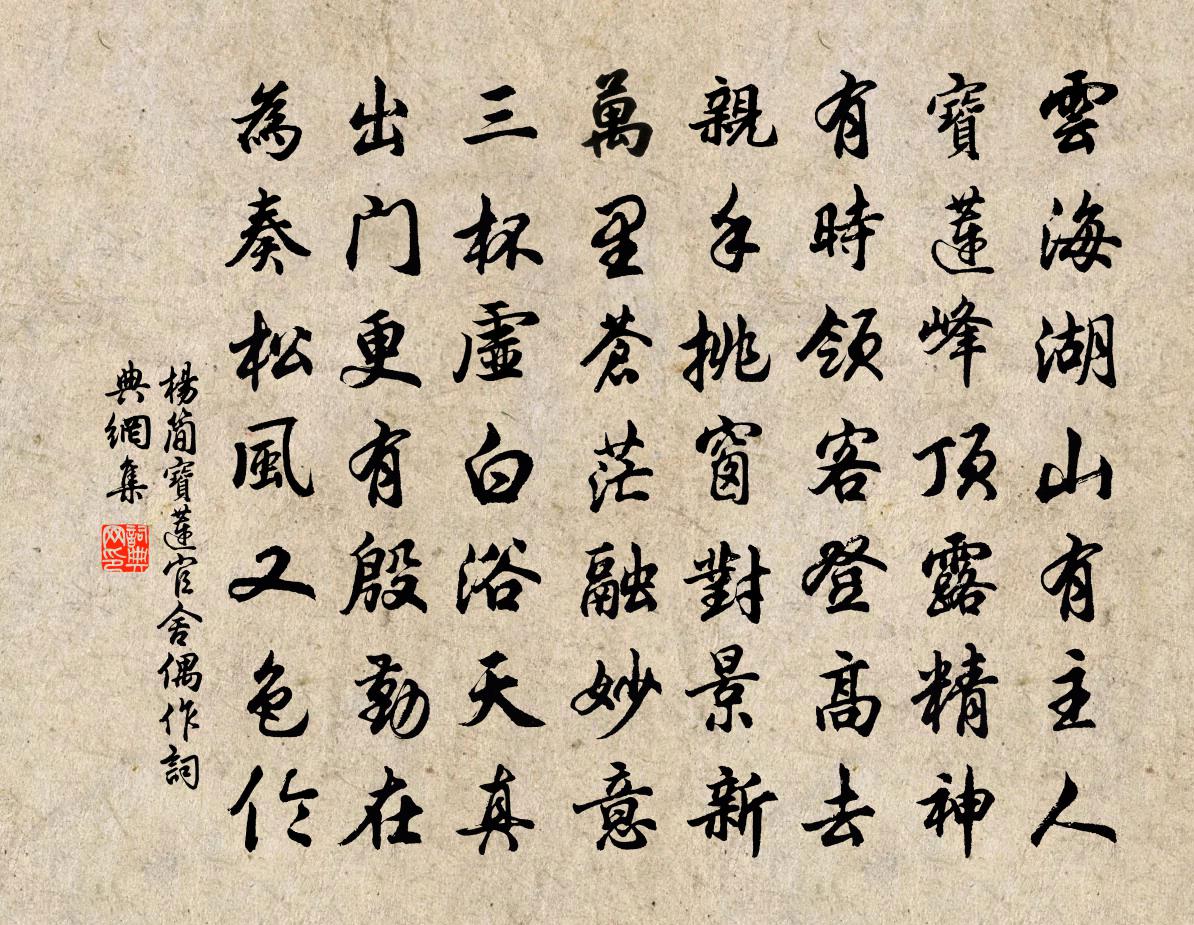 雲海湖山有主人
寶蓮峰頂露精神
有時領客登高去
親手挑窗對景新
萬里蒼茫融妙意
三杯虛白浴天真
出门更有殷勤在
為奏松風又色伶
楊簡寶蓮官舍偶作詞
典網集
詞典
网印